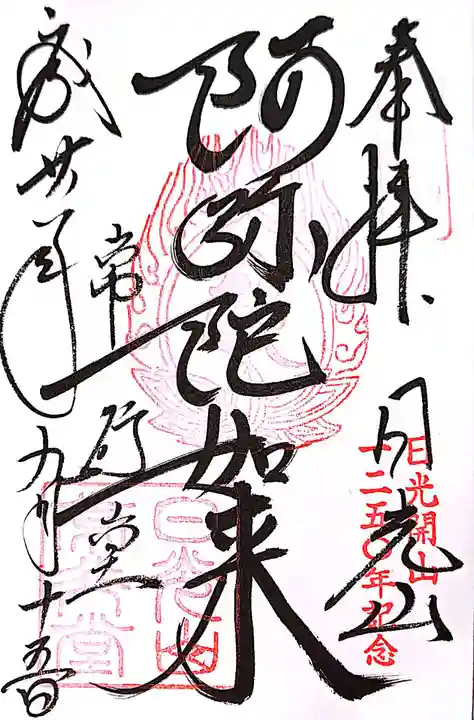 奉拝
日光山
日光開山
一二五〇年記念
阿弥陀如来
常行堂
日光山
常行堂
成廿八年九月十五日